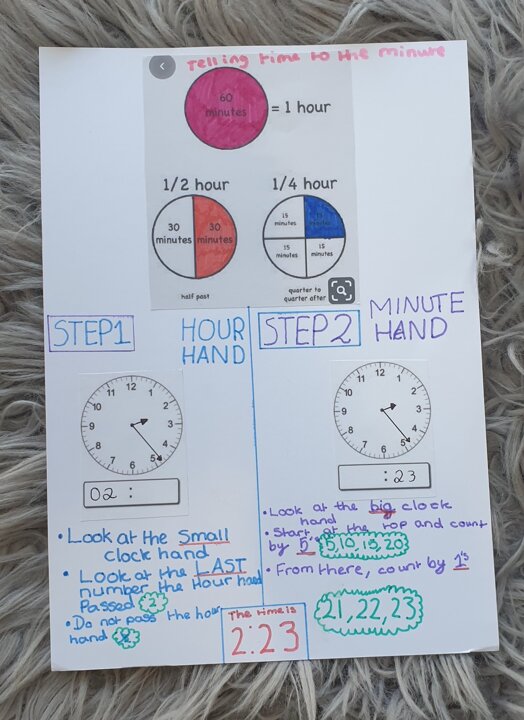 Telling time to the minute
60
minutes
= 1 hour
1/2 hour
1/4 hour
30
minutes
30
minutes
15
minutes
15
minutes
15
minutes
15
minutes
half past
quarter to
quarter after
STEP 1
HOUR
HAND
12
1
2
3
4
5
6
7
8
9
10
11
02 :
• Look at the Small
clock hand
• Look at the LAST
number the Hour hand
Passed 2
• Do not pass the hour
hand
STEP 2
MINUTE
HAND
12
1
2
3
4
5
6
7
8
9
10
11
: 23
• Look at the big clock
hand
• Start at the top and count
by 5's 5, 10, 15, 20
• From there, count by 1's
21, 22, 23
The time is
2:23